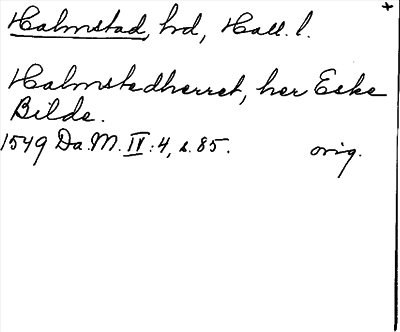 +
Halmstad, hd, Hall. l.
Halmstedherret, her Eske
Bilde.
1549 Da. M. IV: 4, s. 85. orig.